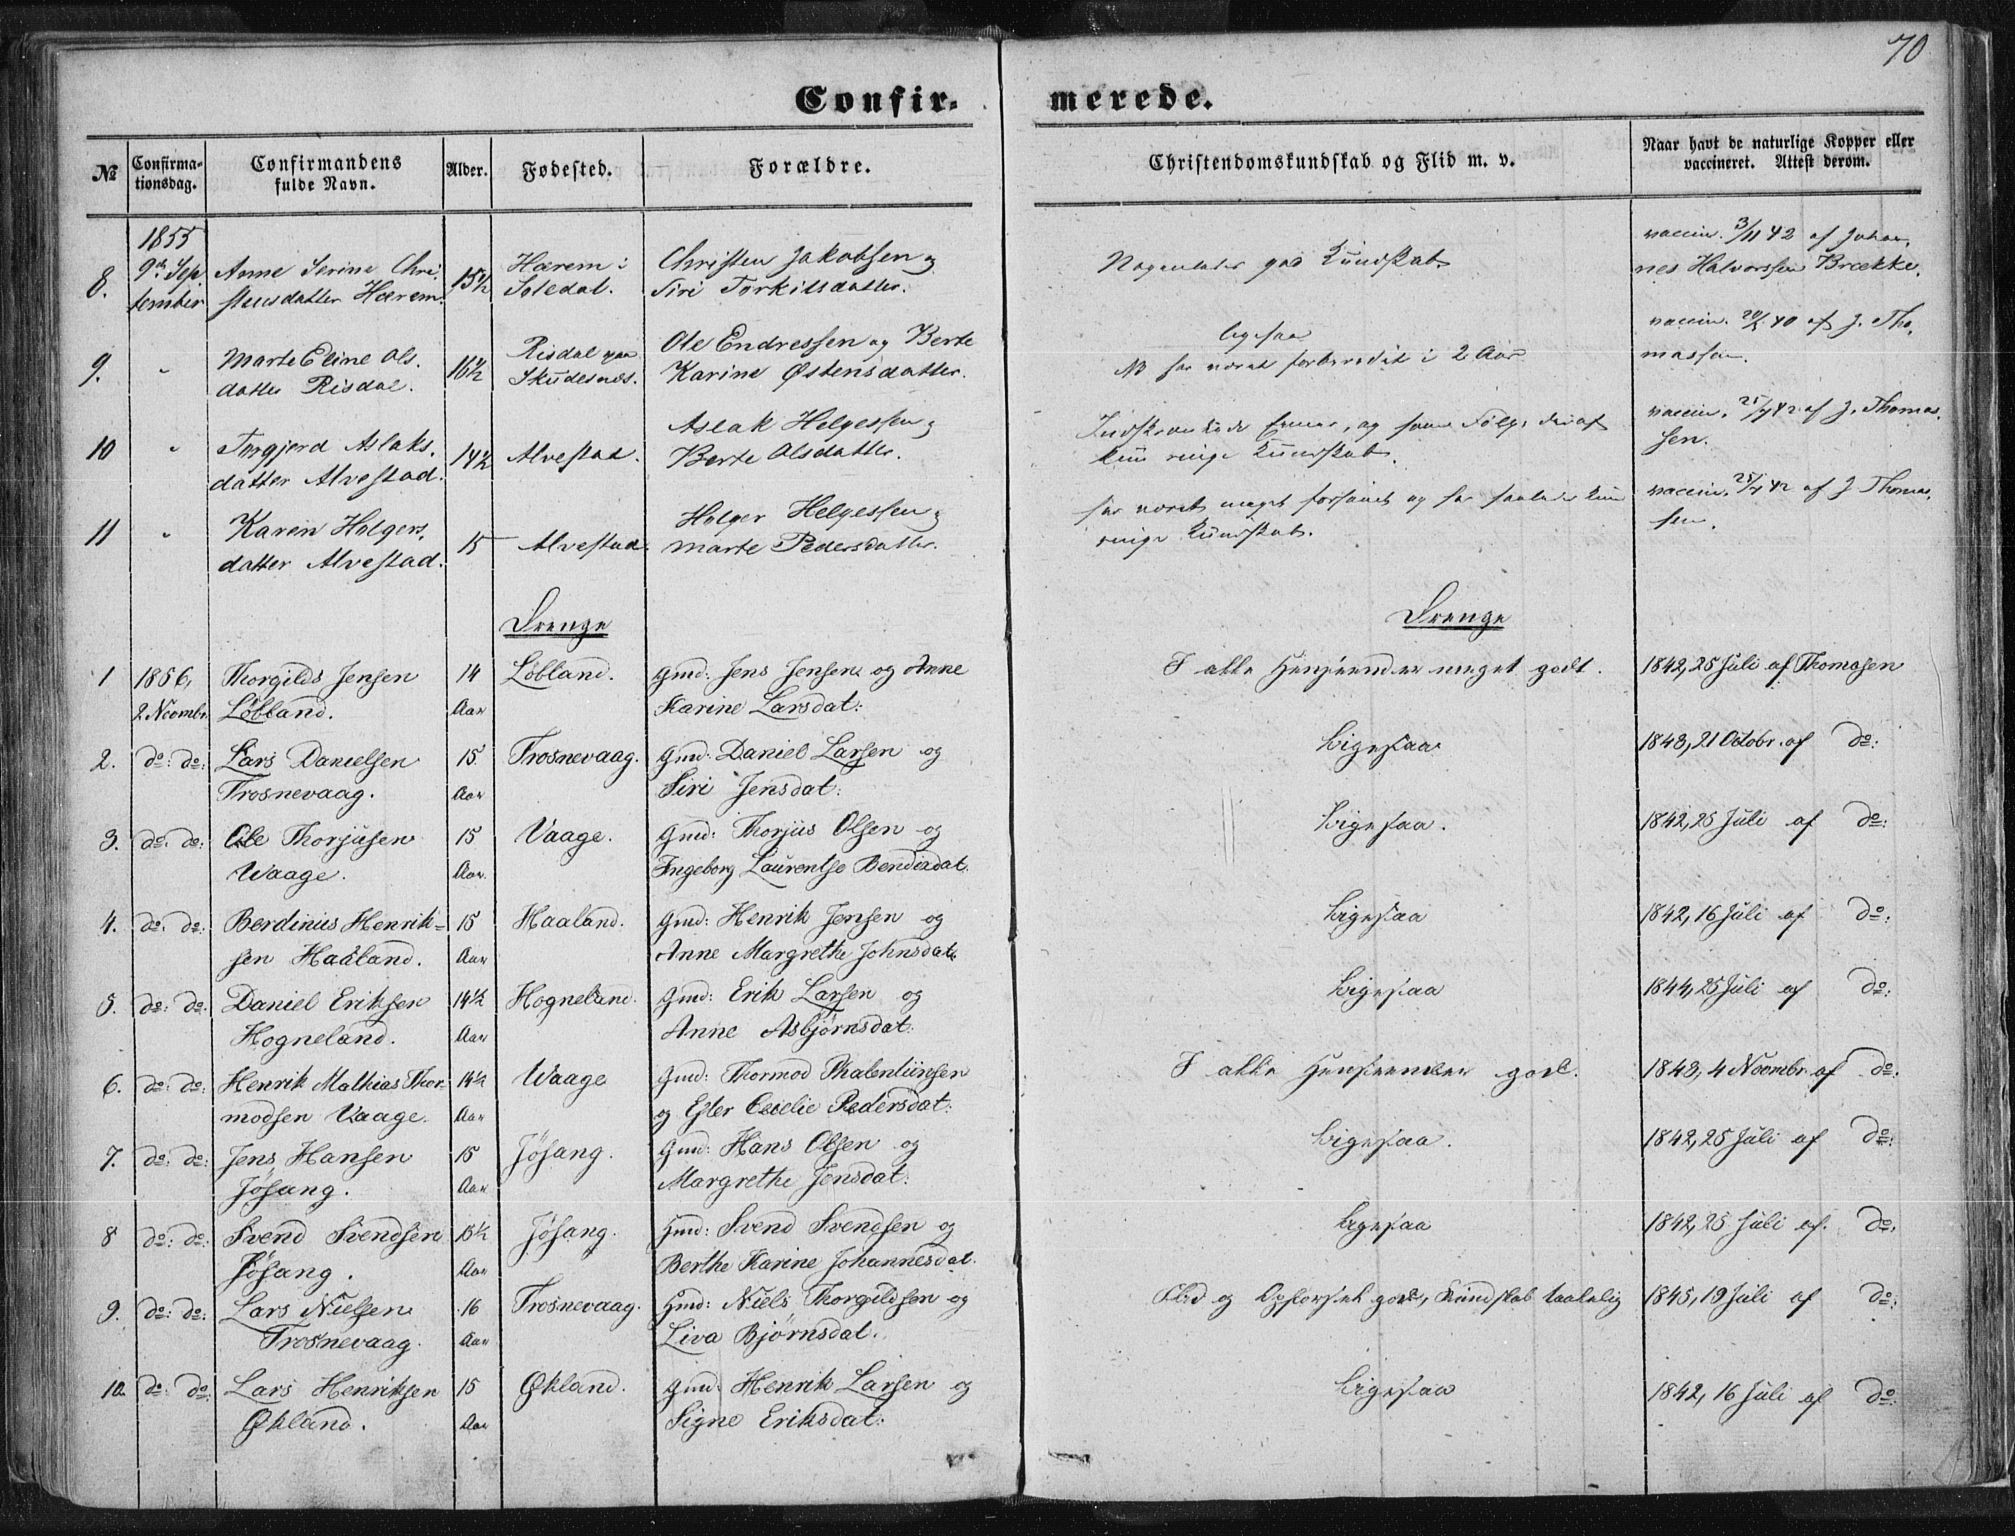 70
Confirmerede.
№ Confirmationsdag. Confirmandens fulde Navn. Alder. Fødested. Forældre. Christendomskundskab og Flid m. v. Naar havt de naturlige Kopper eller vaccineret. Attest derom.
1855
8. 9de Sep- Anne Serine Chri- 15½ Hærem i Christen Jakobsen og Nogenledes god Kundskab vaccin. 3/11 42 af Johan-
tember stensdatter Hærem. Soledal. Siri Torkilsdatter. nes Halvorssen Brække.
9. " Marte Eline Ols- 16½ Risdal paa Ole Endressen og Berte ligesaa vaccin. 20/2 40 af J. Tho-
datter Risdal. Skudesnæs. Karine Østensdatter. NB har været forberedet i 2 Aar massen.
10 " Torgjerd Aslaks- 14½ Alvestad. Aslak Helgessen og Indskrænkede Evner, og som Følge deraf vaccin. 25/7 42 af J. Thomas-
datter Alvestad. Berte Olsdatter. kun ringe Kundskab. sen.
11 " Karen Holgers- 15 Alvestad. Holger Helgessen og har været meget forsømt og har saaledes kun vaccin. 25/7 42 af J Thomas-
datter Alvestad. Marte Pedersdatter. ringe Kundskab. sen.
Drenge Drenge
1 1856, Thorgilds Jensen 14 Løbland. Gmd: Jens Jensen og Anne I alle Henseender meget godt. 1842, 25 Juli af Thomasen
2 Novmbr. Løbland. Aar Karine Larsdat:
2. do: do: Lars Danielsen 15 Trosnevaag. Gmd: Daniel Larsen og Ligesaa 1843, 21 Octobr. af do:
Trosnevaag. Aar Siri Jensdat:
3. do: do: Ole Thorjusen 15 Vaage. Gmd: Thorjus Olsen og Ligesaa. 1842, 25 Juli af do:
Waage. Aar. Ingeborg Laurentse Bendixdat.
4. do: do: Berdinius Henrik- 15 Haaland. Gmd: Henrik Jensen og Ligesaa 1842, 16 Juli af do:
sen Haaland. Aar Anne Margrethe Johnsdat.
5. do: do: Daniel Eriksen 14½ Hogneland. Gmd: Erik Larsen og Ligesaa 1844, 25 Juli af do:
Hogneland. Aar Anne Asbjørnsdat:
6. do: do: Henrik Mathias Thor- 14½ Waage Gmd: Thormod Thalentiinsen I alle Henseender godt. 1843, 4 Novmbr. af do:
modsen Vaage. Aar og Ester Cecelie Pedersdat:
7. do: do: Jens Hansen 15 Jøsang. Gmd: Hans Olsen og Ligesaa. 1842, 25 Juli af do:
Jøsang. Aar Margrethe Jonsdat:
8 do: do: Svend Svendsen 15½ Jøsang. Gmd: Svend Svendsen og Ligesaa 1842, 25 Juli af. do:
Jøsang. Aar Berthe Karine Johannesdat.
9. do: do: Lars Nielsen 16 Trosnevaag. Gmd: Niels Thorgildsen og Flid og Opførsel god, Kundskab taalelig 1845, 19 Juli af do:
Trosnevaag. Aar Liva Bjørnsdat.
10. do: do: Lars Henriksen 15 Økland. Gmd: Henrik Larsen og Ligesaa 1842, 16 Juli af do:
Økland. Aar Signe Eriksdat: